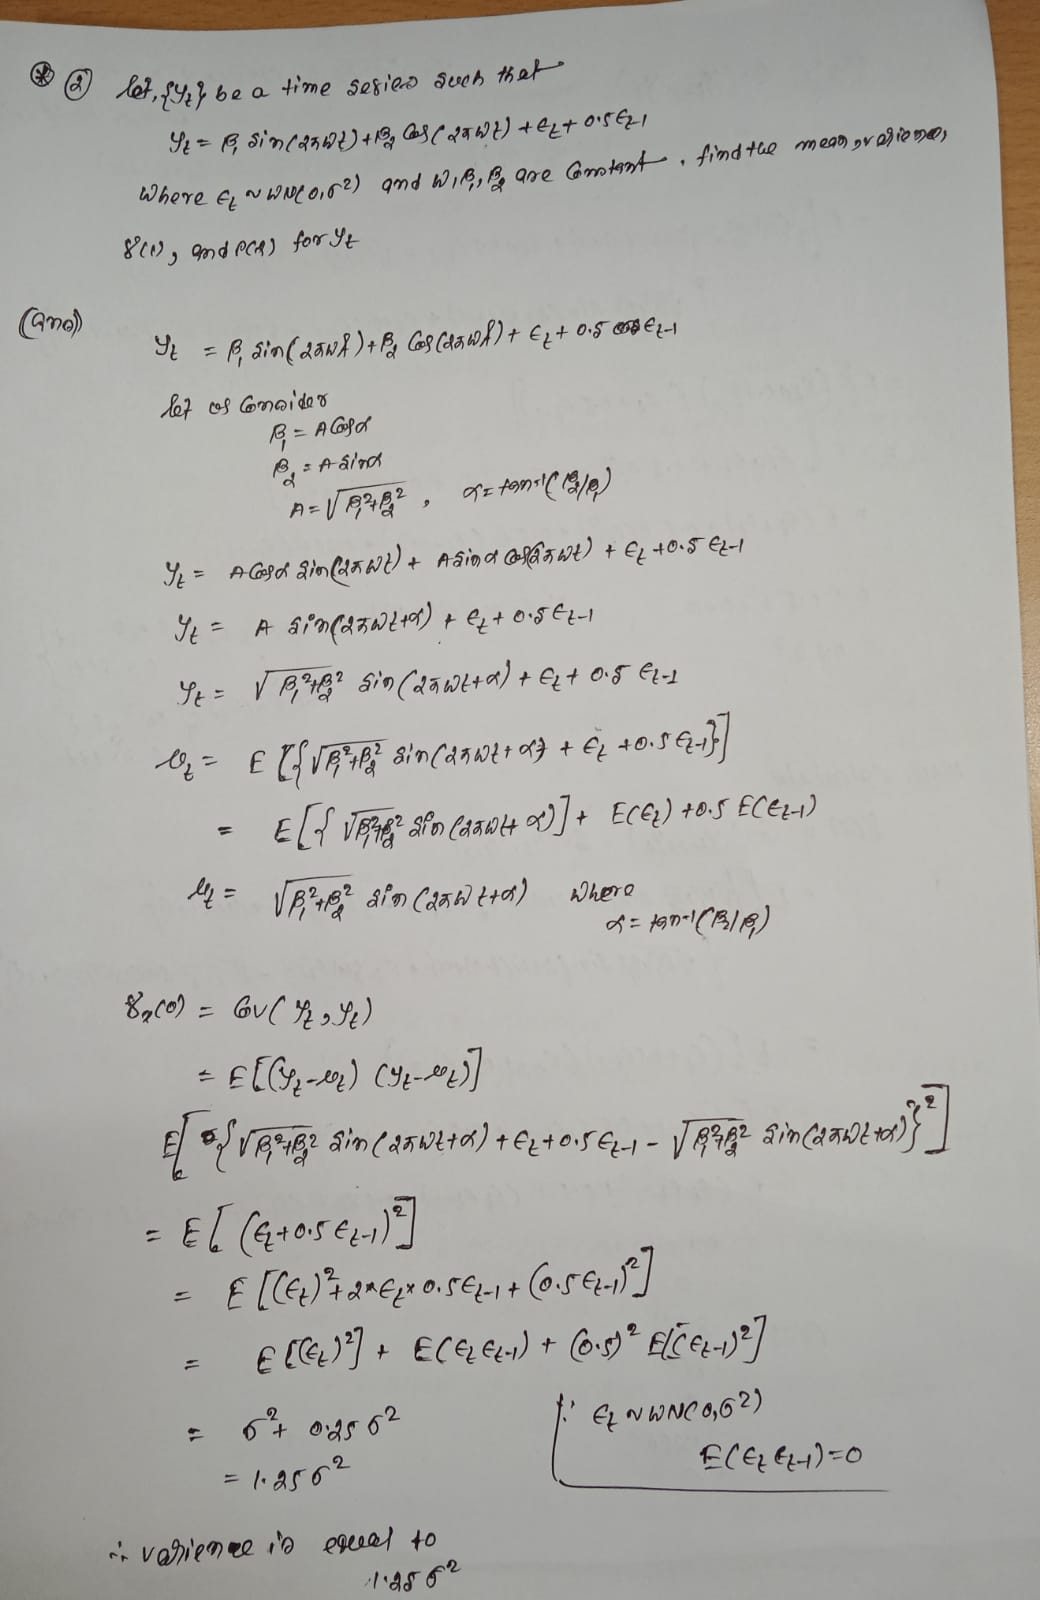 ② let, {Yt} be a time series such that
Yt = β1 sin(2πωt) + β2 Cos(2πωt) + Єt + 0.5 Єt-1
where Єt ~ WN(0,σ2) and ω, β1, β2 are Constant, find the mean, varience,
γ(1), and ρ(2) for Yt
(ans)
Yt = β1 sin(2πωt) + β2 Cos(2πωt) + Єt + 0.5 Єt-1
let us Consider
β1 = A Cosα
β2 = A sinα
A = √β1²+β2² , α = tan-1(β2/β1)
Yt = A Cosα sin(2πωt) + A sinα Cos(2πωt) + Єt + 0.5 Єt-1
Yt = A sin(2πωt+α) + Єt + 0.5 Єt-1
Yt = √β1²+β2² sin(2πωt+α) + Єt + 0.5 Єt-1
μt = E[{√β1²+β2² sin(2πωt+α) + Єt + 0.5 Єt-1}]
= E[{√β1²+β2² sin(2πωt+α)] + E(Єt) + 0.5 E(Єt-1)
μt = √β1²+β2² sin(2πωt+α) where
α = tan-1(β2/β1)
γx(0) = Cov(Yt, Yt)
= E[(Yt-μt) (Yt-μt)]
E[{√β1²+β2² sin(2πωt+α) + Єt + 0.5 Єt-1 - √β1²+β2² sin(2πωt+α)}²]
= E[(Єt+0.5 Єt-1)²]
= E[(Єt)² + 2*Єt* 0.5 Єt-1 + (0.5 Єt-1)²]
= E[(Єt)²] + E(Єt Єt-1) + (0.5)² E[(Єt-1)²]
= σ² + 0.25 σ² ∵ Єt ~ WN(0,σ2)
E(Єt Єt-1)=0
= 1.25 σ²
∴ varience is equal to
1.25 σ²